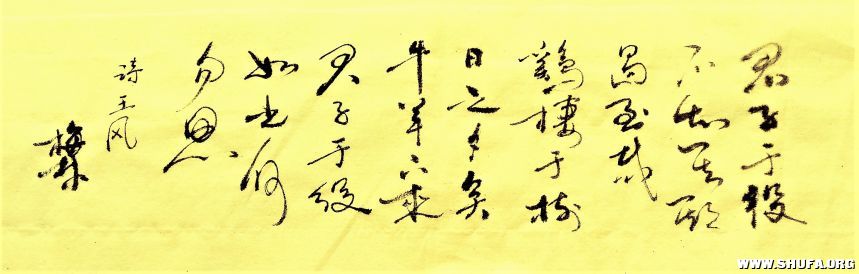 君子于役
不知其期
曷至哉
鷄棲于树
日之夕矣
牛羊下来
君子于役
如之何
勿思
诗王风
WWW.SHUFA.ORG